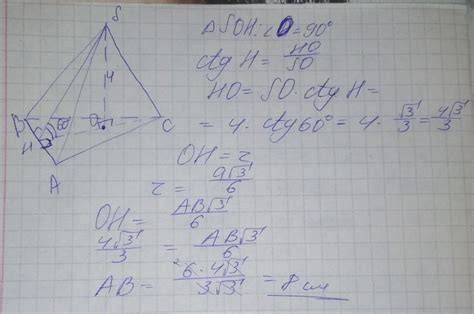 S
4
B
60°
O
C
H
A
ΔSOH: ∠O=90°
ctg H = HO/SO
HO = SO · ctg H =
= 4 · ctg 60° = 4 · √3/3 = 4√3/3
OH = r
r = a√3/6
OH = AB√3/6
4√3/3 = AB√3/6
AB = ²6·4√3/3√3 = 8 см